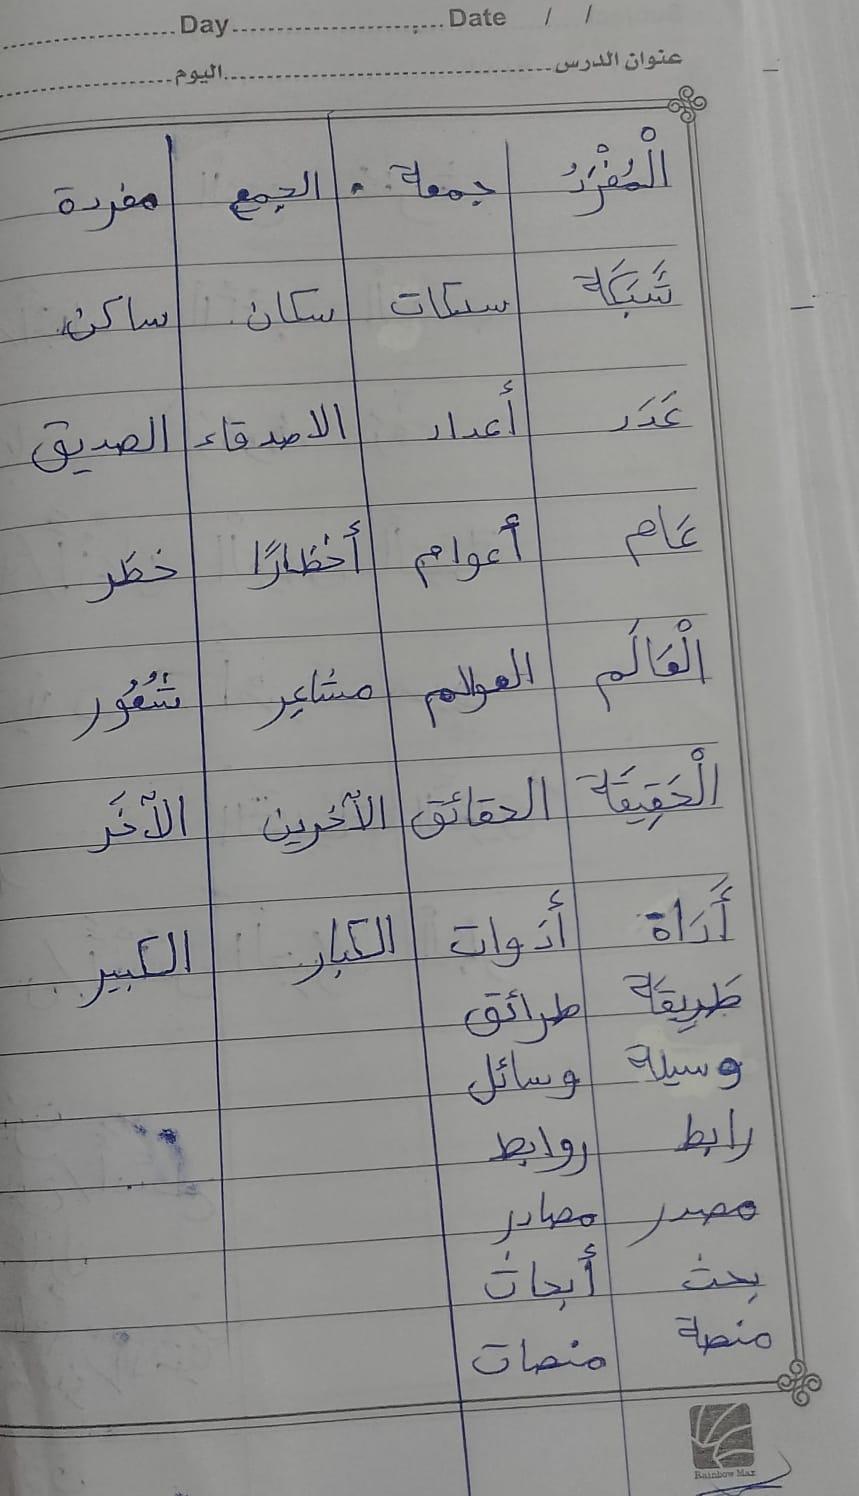 Day Date / /
عنوان الدرس اليوم
الْمُفْرَدُ جمعة الجمع مفردة
شَبَكَة سبكات سكان ساكن
عَدَد أعداد الاصدقاء الصديق
عَام أعوام أخطارًا خطَر
الْعَالَم العوالم مشاعِر شُعُور
الْحَقِيقَة الحقائق الآخرين الآخَر
أَدَاة أدَوات الكبار الكبير
طَرِيقَة طرائق
وسيلة وسائل
رابط روابط
مصدر مصادر
بحث أبحاث
منصة منصات
Rainbow Max